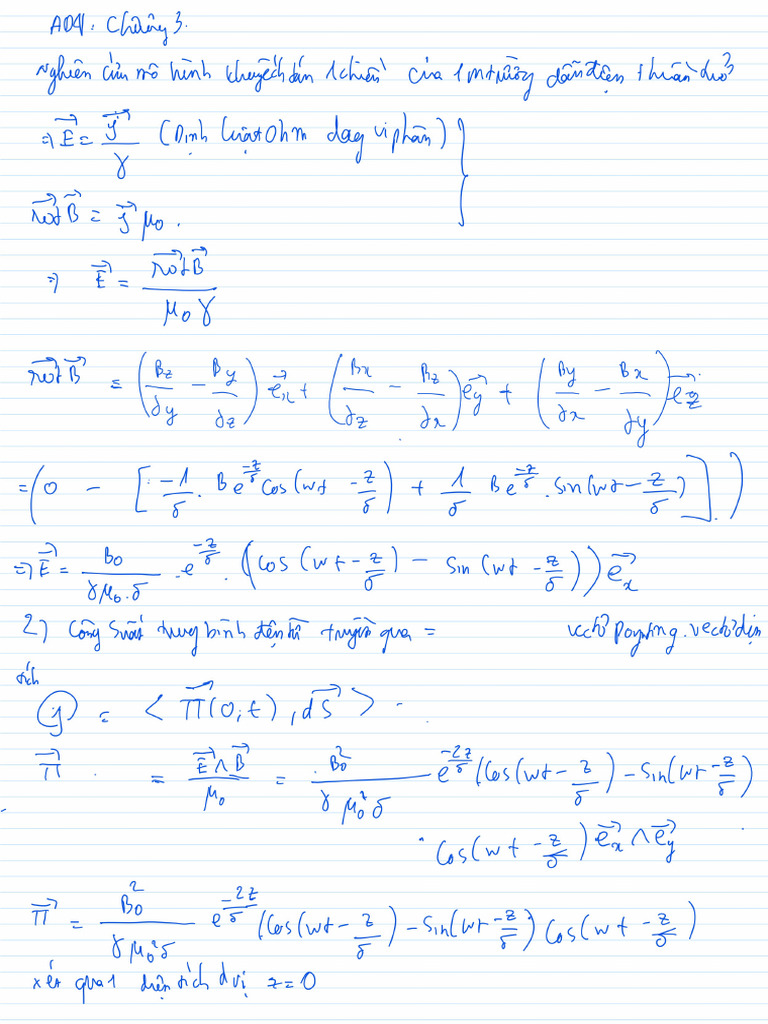 A04: Chương 3.
Nghiên cứu mô hình khuyếch tán 1 chiều của 1 mtrường dẫn điện thuần trở
⇒ E⃗ = j⃗ / γ (Định luật Ohm dạg vi phân) }
rot⃗ B⃗ = j⃗ μ₀.
⇒ E⃗ = rot⃗ B⃗ / μ₀ γ
rot⃗ B⃗ = (Bz/∂y − By/∂z) e⃗x + (Bx/∂z − Bz/∂x) e⃗y + (By/∂x − Bx/∂y) e⃗z
= (0 − [−1/δ . B e^(−z/δ) cos(wt − z/δ) + 1/δ B e^(−z/δ) . sin(wt − z/δ)])
⇒ E⃗ = B₀ / γμ₀.δ . e^(−z/δ) . (cos(wt − z/δ) − sin(wt − z/δ)) e⃗x
2) Công suất trung bình điện từ truyền qua = vectơ Poynting . vectơ diện
tích
𝒫 = < Π⃗(0,t), dS⃗ >
Π⃗ = E⃗ ∧ B⃗ / μ₀ = B₀² / γ μ₀² δ e^(−2z/δ) (cos(wt − z/δ) − sin(wt − z/δ)
. cos(wt − z/δ) e⃗x ∧ e⃗y
Π⃗ = B₀² / γ μ₀² δ e^(−2z/δ) (cos(wt − z/δ) − sin(wt − z/δ) cos(wt − z/δ)
xét qua 1 diện tích đvị z = 0